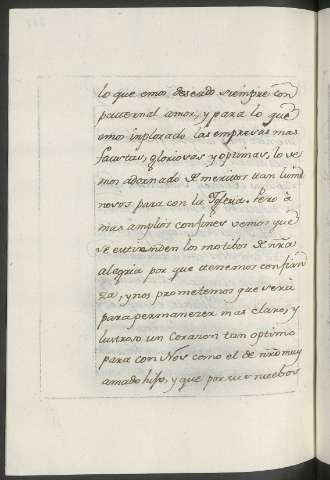 lo que emos deseado siempre con
paternal amor, y para lo que
emos inplorado las empresas mas
faustas, gloriosas y optimas, lo ve
mos adornado de meritos tan lumi
nosos para con la Yglesia. Pero à
mas amplios confines vemos que
se extienden los motibos de nrã
alegria por que tenemos confian
za, y nos prometemos que serà
para permanezer mas claro, y
lustroso un Corazon tan optimo
para con Nos como el de nrõ muy
amado hijo, y que por sus nuebos